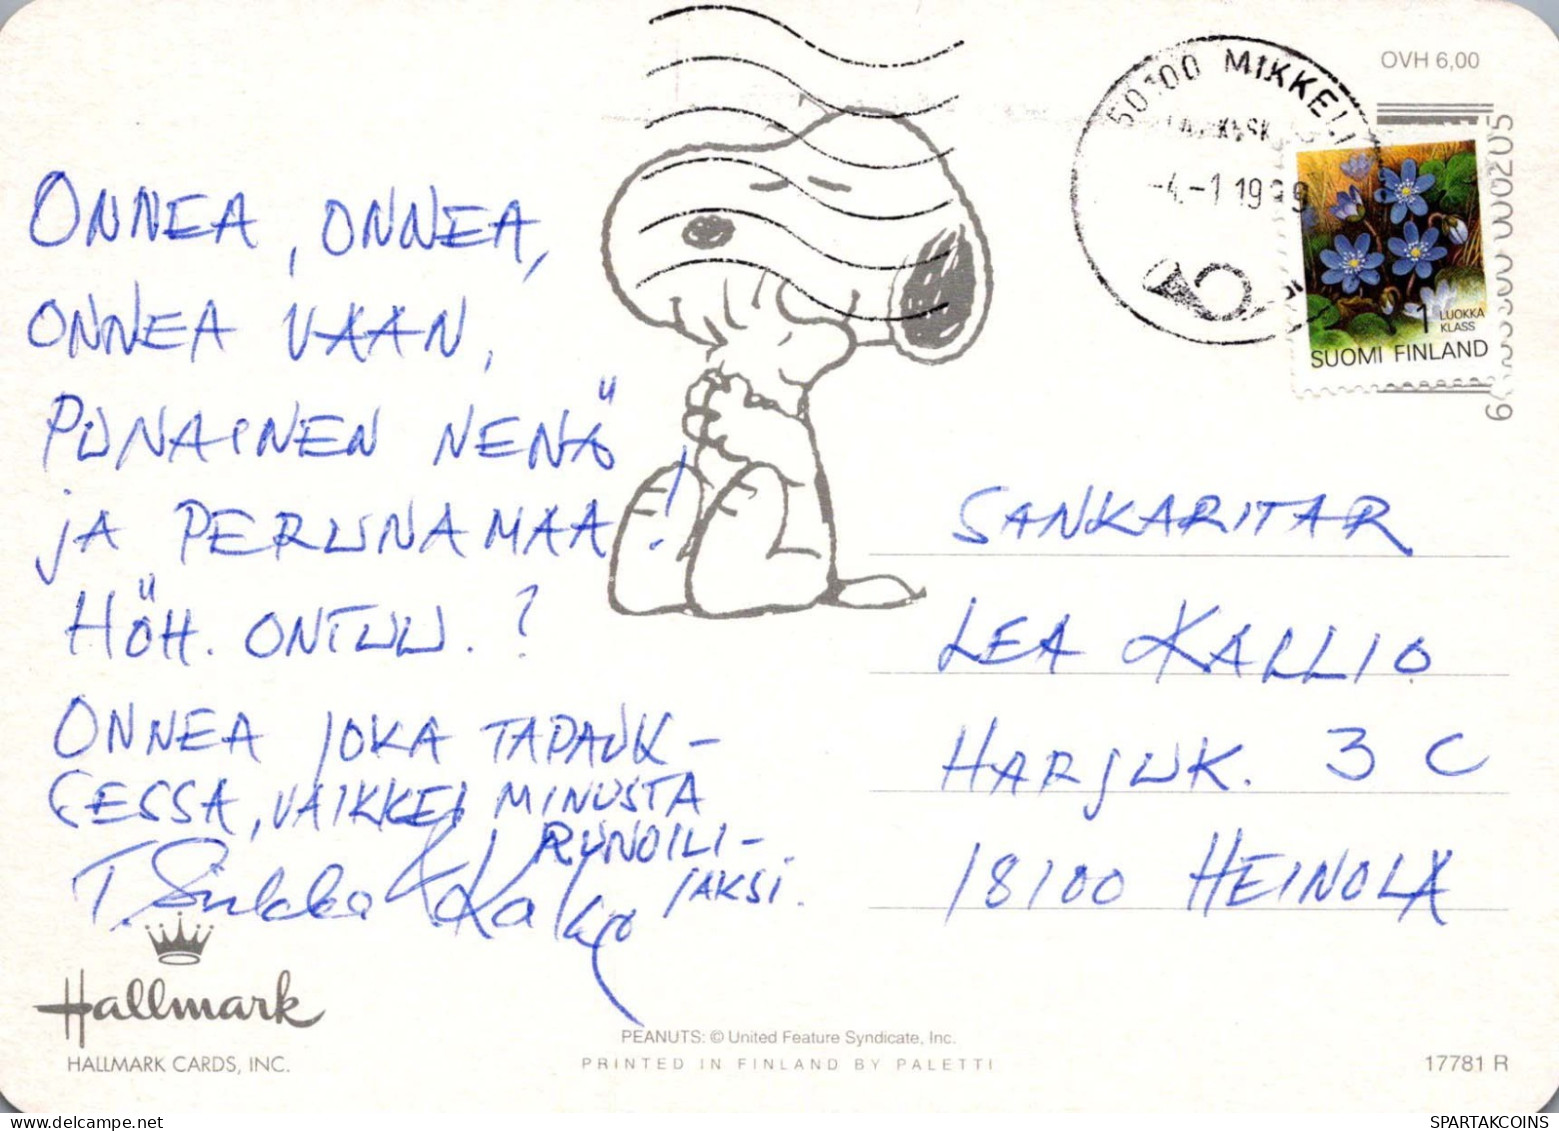 ONNEA, ONNEA,
ONNEA VAAN,
PUNAINEN NENÄ
JA PERUNAMAA!
HÖH. ONTUU.?
ONNEA JOKA TAPAUK-
SESSA, VAIKKEI MINUSTA
RUNOILI-
JAKSI.
T. Sirkka Kalke
Hallmark
HALLMARK CARDS, INC.
PEANUTS: © United Feature Syndicate, Inc.
PRINTED IN FINLAND BY PALETTI
OVH 6,00
50100 MIKKELI
-4.-1 1999
1 LUOKKA
KLASS
SUOMI FINLAND
SANKARITAR
LEA KALLIO
HARJUK. 3 C
18100 HEINOLA
17781 R
SPARTAKCOINS.COM